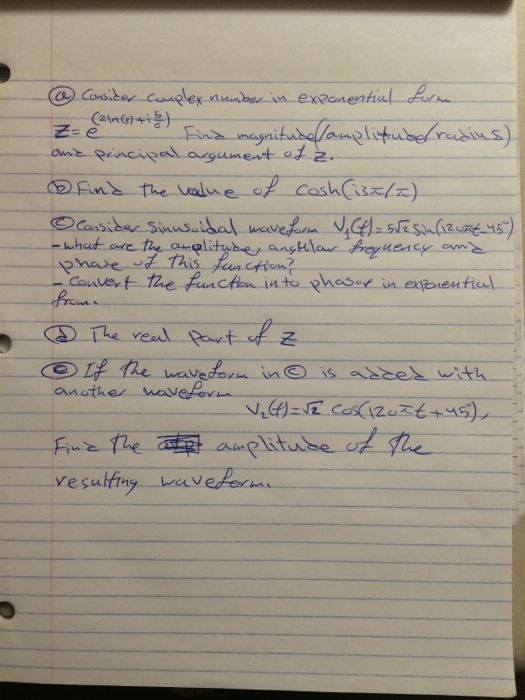 ⓐ Consider complex number in exponential form
z = e^(2ln(3)+i 5/6) Find magnitude/(amplitude/radius)
and principal argument of z.
ⓑ Find the value of cosh(i3π/π)
ⓒ Consider sinusoidal waveform V₁(t) = 5√2 sin(120πt-45°)
- what are the amplitude, angular frequency and
phase of this function?
- Convert the function into phasor in exponential
from.
ⓓ The real part of z
ⓔ If the waveform in ⓒ is added with
another waveform
V₂(t) = √2 cos(120πt+45°),
Find the amplitude of the
resulting waveform.